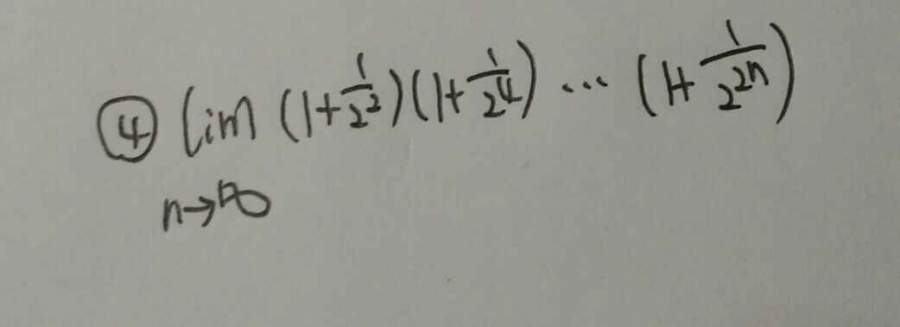 ④ lim (1+1/2²)(1+1/2⁴) ... (1+1/2²ⁿ)
n→∞